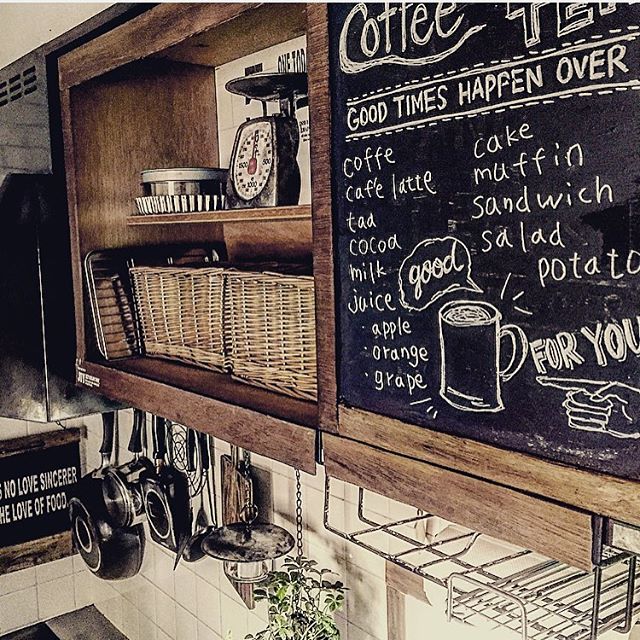 Coffee
GOOD TIMES HAPPEN OVER
coffe
cafe latte
taa
cocoa
milk
juice
· apple
· orange
· grape
cake
muffin
sandwich
salad
potato
good
FOR YOU
ONE TO
1500
500
1000
NO LOVE SINCERER
HE LOVE OF FOOD.